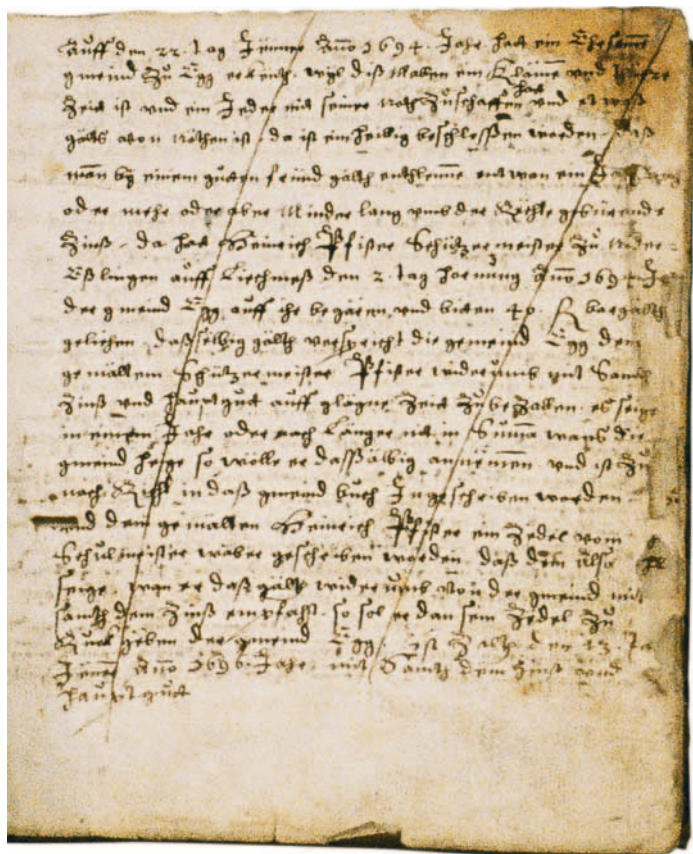 Auff den 22. tag Jenner Año 1694. Jahr hatt ein Ehrsamme
gmeind Zu Egg erkenth. wyl diß mallen ein Klämme und
Zeit ist und ein Jeder mit seiner noth Zuschaffen hat und etwaß
gälts von nöthen ist. da ist ein heilig beschlossen worden. daß
man by einem gutten fründ gälth enthlenne ein Jahr
oder mehr oder aber minder lang umb der Rächte gebürende
Zinß. da hatt Heinrich Pfister Schützenmeister Zu nider
Eßlingen auff Liechmeß den 2. tag hornung Año 1694.
der gmeind Egg auff ihr begären und bitten 40. R bargälth
gelichen. daßselbig gälth verspricht die gemeind Egg dem
gemälten Schützenmeister Pfister widerumb mit Samth
Zinß und hauptgutt auff glägne Zeit Zu bezallen. es seige
in einem Jahr oder nach länger. in Suma wans die
gmeind heige so wölle er daßsälbig annemen und ist
in daß gmeind buch Ingeschriben worden
und dem gemälten Heinrich Pfister ein Zedel vom
Schulmeister wäber geschriben worden. daß dem also
seige. wan er daß gälth widerumb von der gmeind mit
samth dem Zinß empfacht. so sol er dan sein Zedel Zu
Ruck geben der gmeind Egg. ist Zalth den 13. ta
Jenner Año 1696. Jahr mit Samth dem Zinß und
hauptgutt